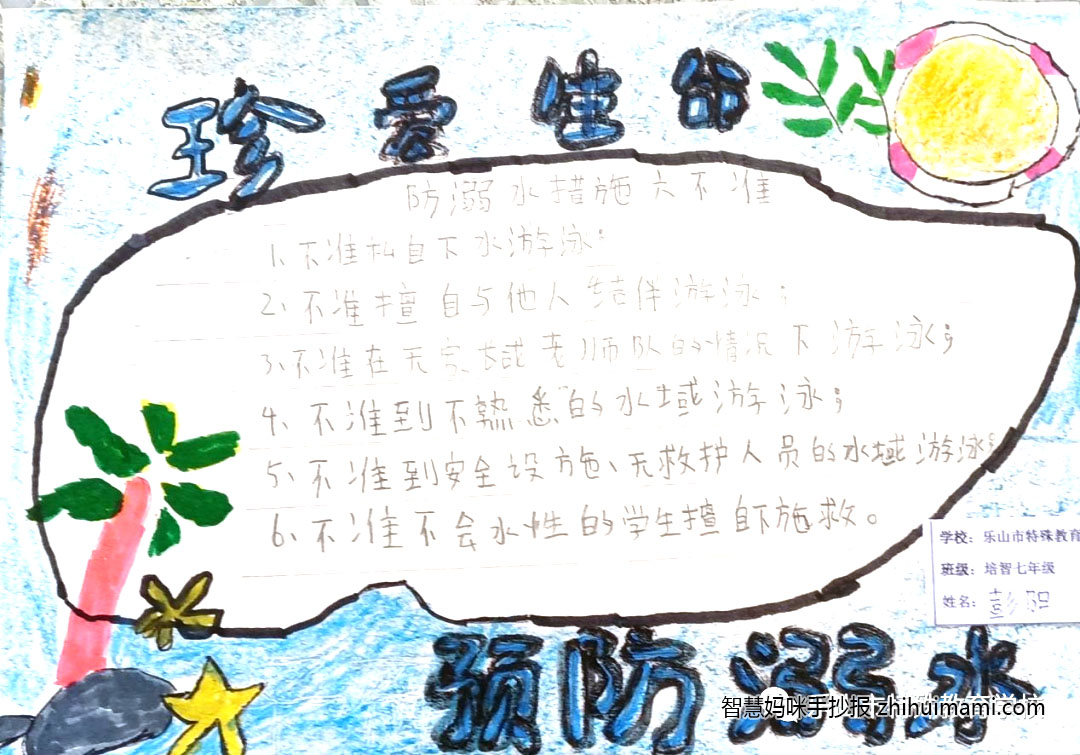 珍爱生命
防溺水措施六不准
1、不准私自下水游泳；
2、不准擅自与他人结伴游泳；
3、不准在无家长或老师队的情况下游泳；
4、不准到不熟悉的水域游泳；
5、不准到安全设施、无救护人员的水域游泳；
6、不准不会水性的学生擅自下施救。
学校：乐山市特殊教育
班级：培智七年级
姓名：彭阳
预防溺水
智慧妈咪手抄报 zhihuimami.com